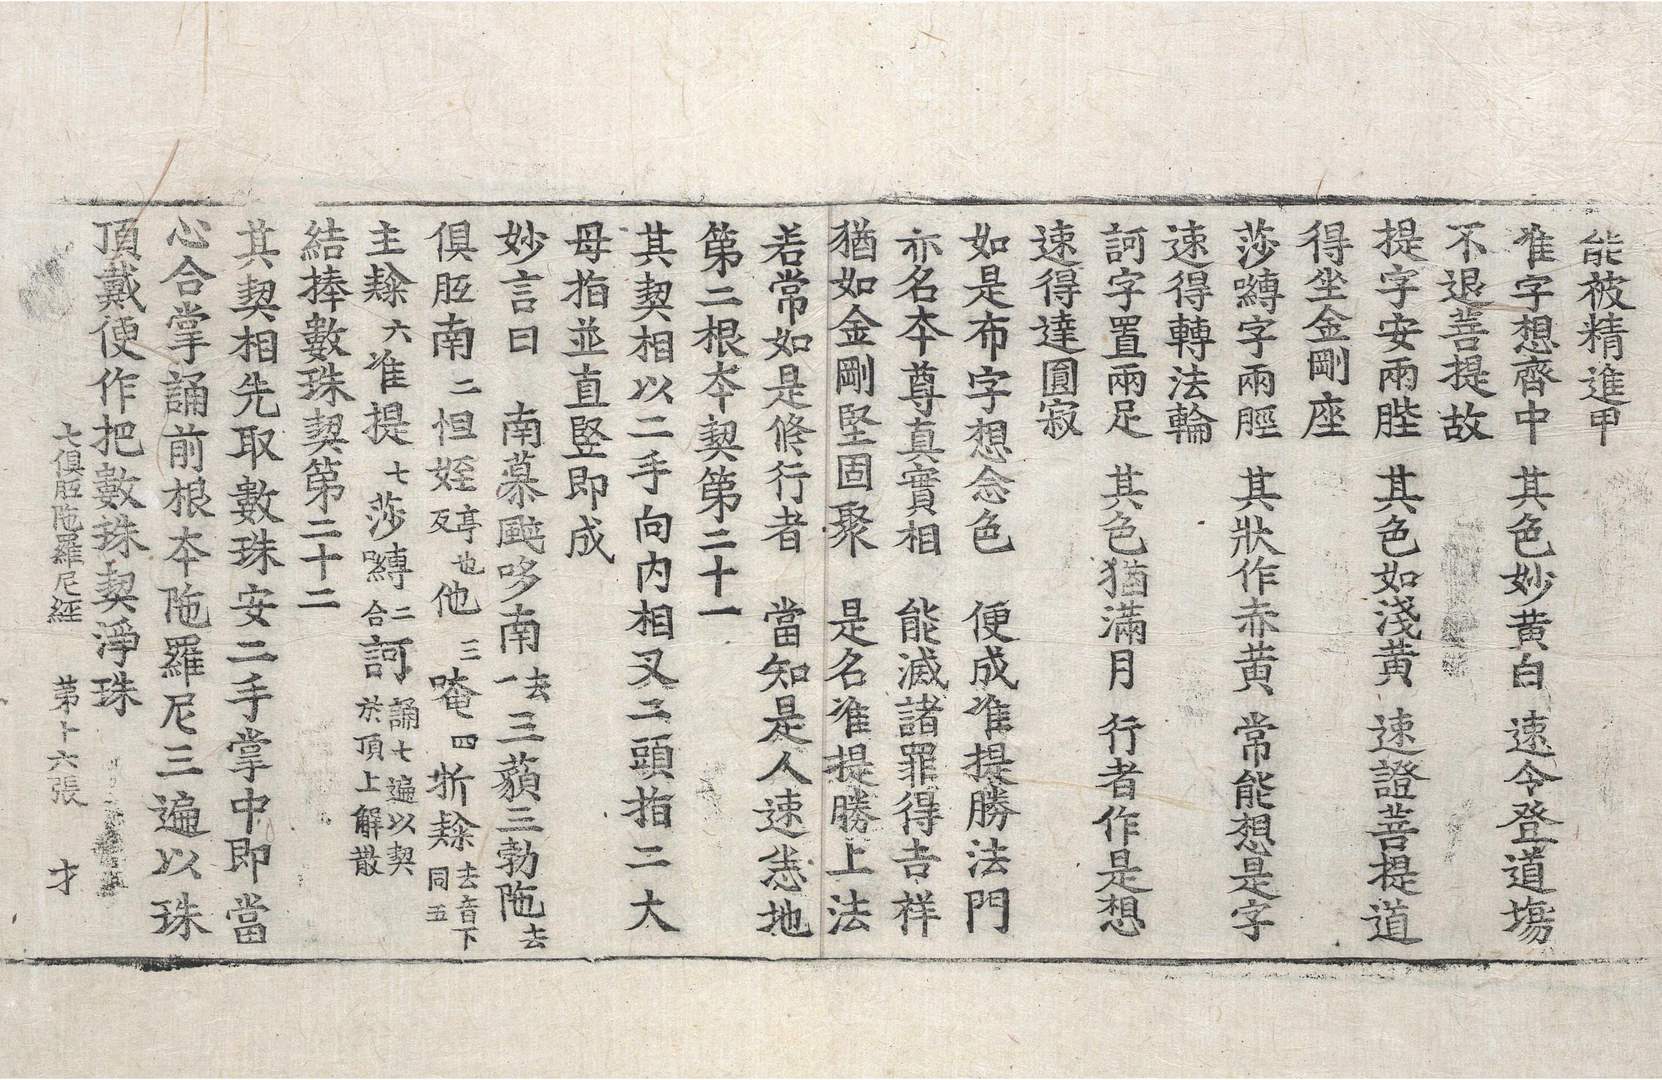 能被精進甲
准字想齊中　其色妙黄白　速令登道場
不退菩提故
提字安兩䏶　其色如淺黄　速證菩提道
得坐金剛座
莎嚩字兩脛　其狀作赤黄　常能想是字
速得轉法輪
訶字置兩足　其色猶滿月　行者作是想
速得達圓寂
如是布字想念色　便成准提勝法門
亦名夲尊真實相　能滅諸罪得吉祥
猶如金剛堅固聚　是名准提勝上法
若常如是修行者　當知是人速悉地
第二根夲契第二十一
其契相以二手向内相叉二頭指二大
母指並直竪即成
妙言曰　南慕颯哆南去一三藐三勃陁去
俱胝南二怛姪亭也反他三唵四折𣫍去音下同五
主𣫍六准提七莎嚩二合訶誦七遍以契於頂上解散
結捧數珠契第二十二
其契相先取數珠安二手掌中即當
心合掌誦前根夲陁羅尼三遍以珠
頂戴便作把數珠契淨珠
七俱胝陁羅尼經　第十六張　才